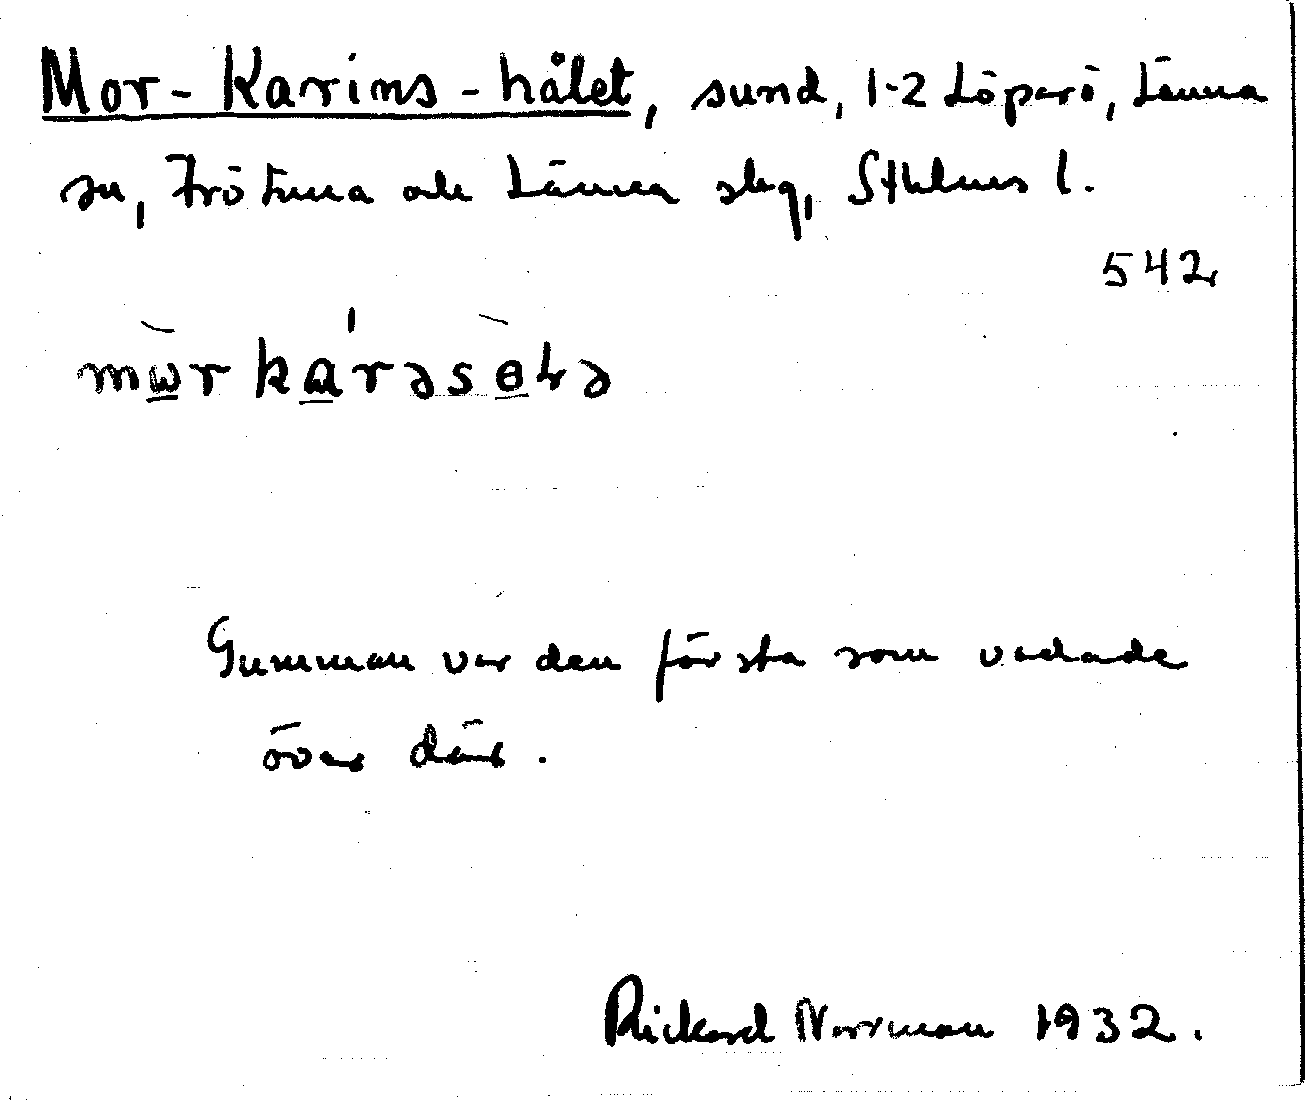 Mor-Karins-hålet, sund, 1-2 Löparö, Länna
sn, Frötuna och Länna skg, Sthlms l.
542
mωrkarəsɵlə
Gumman var den första som vadade
över där.
Rickard Norrman 1932.